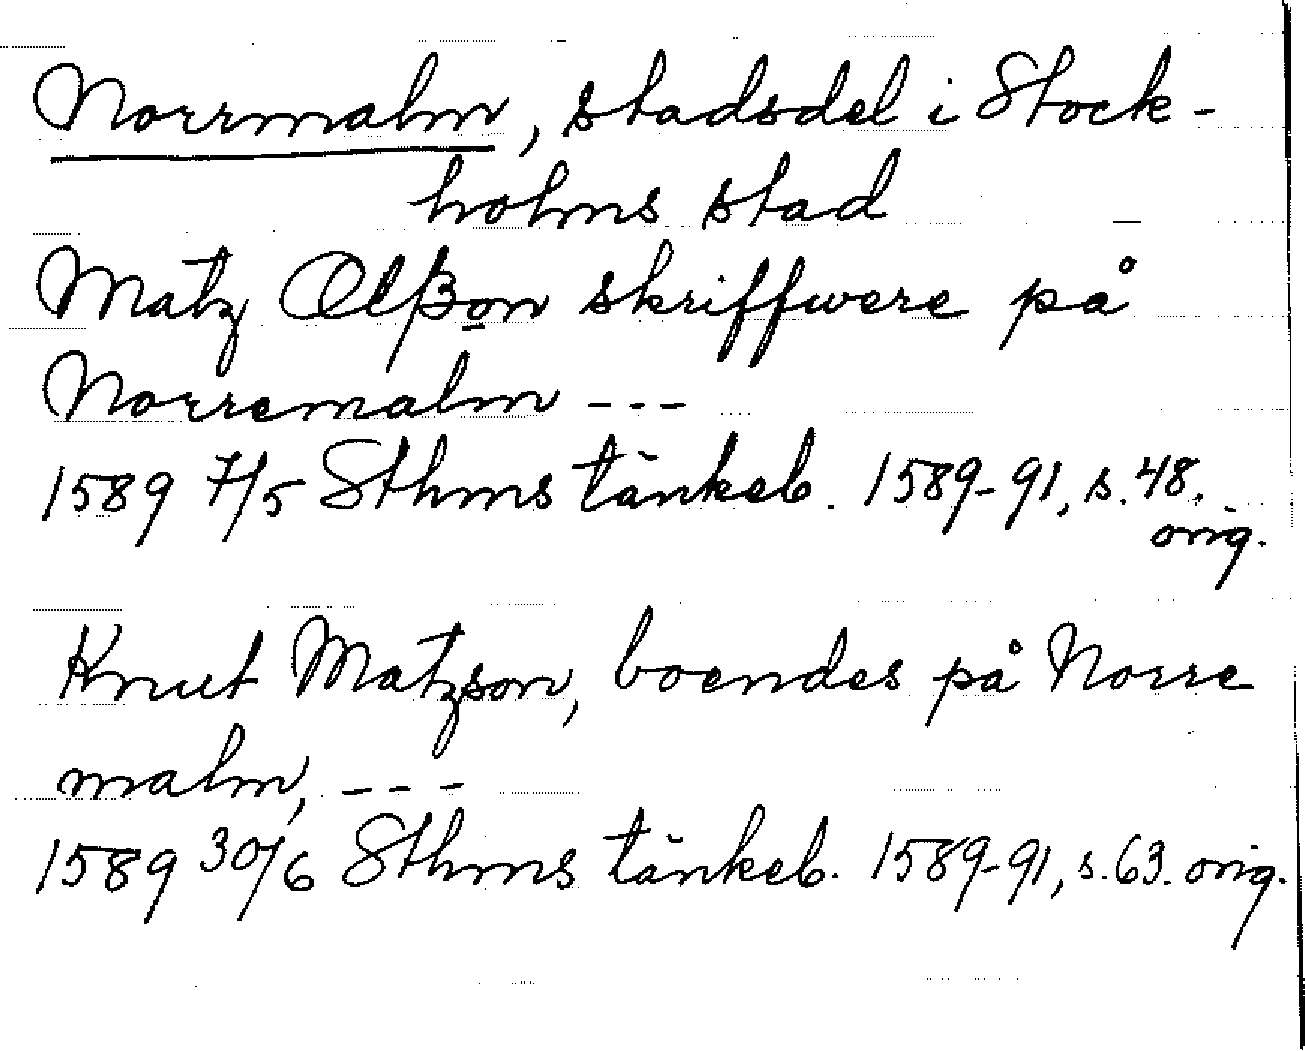 Norrmalm, stadsdel i Stock-
holms stad
Matz Olßon skriffwere på
Norremalm ---
1589 7/5 Sthms tänkeb. 1589-91, s. 48.
orig.
Knut Matzson, boendes på Norre
malm, ---
1589 30/6 Sthms tänkeb. 1589-91, s. 63. orig.